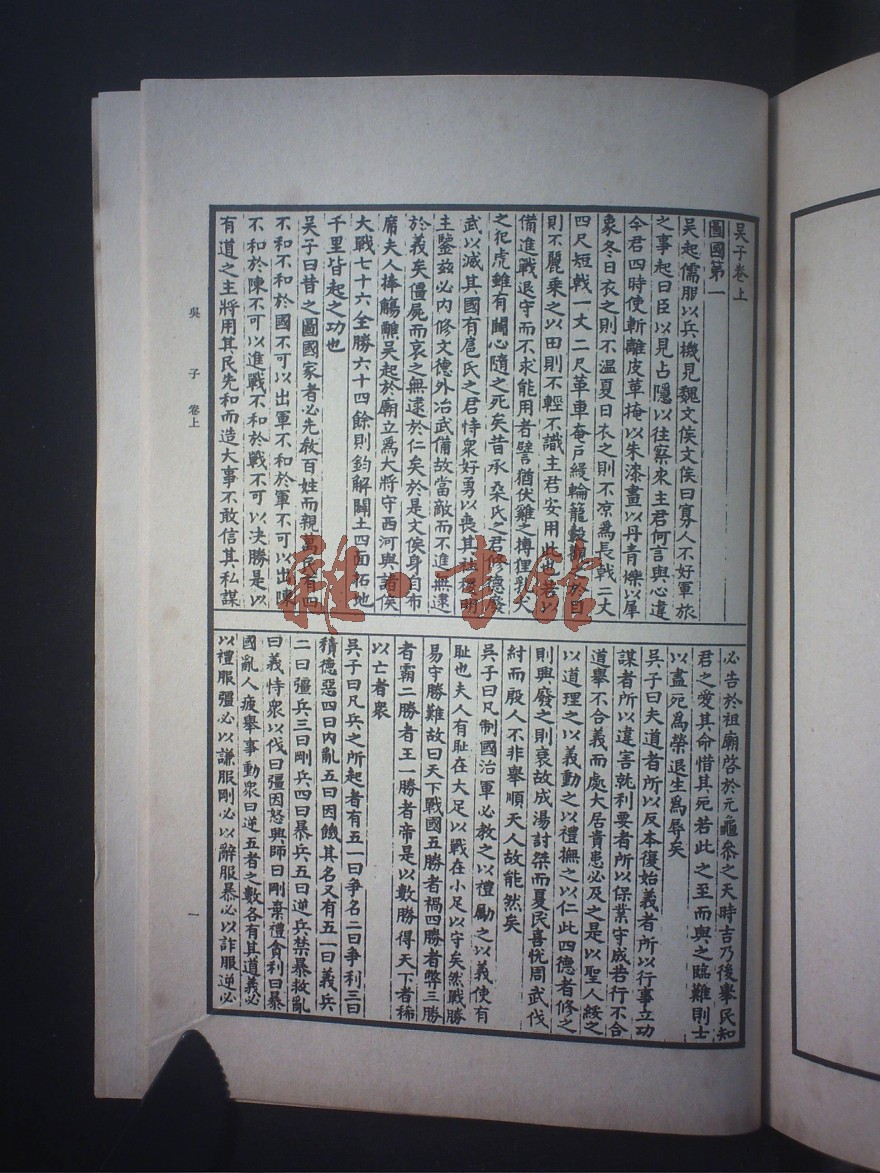 吳子卷上
圖國第一
吳起儒服以兵機見魏文侯文侯曰寡人不好軍旅
之事起曰臣以見占隱以往察來主君何言與心違
今君四時使斬離皮革掩以朱漆畫以丹青爍以犀
象冬日衣之則不温夏日衣之則不凉爲長戟二丈
四尺短戟一丈二尺革車奄戶縵輪籠轂觀於目
則不麗乘之以田則不輕不識主君安用此也若以
備進戰退守而不求能用者譬猶伏雞之搏狸乳犬
之犯虎雖有鬬心隨之死矣昔承桑氏之君修德廢
武以滅其國有扈氏之君恃衆好勇以喪其社稷明
主鑒兹必内修文德外治武備故當敵而不進無逮
於義矣僵屍而哀之無逮於仁矣於是文侯身自布
席夫人捧觴醮吳起於廟立爲大將守西河與諸侯
大戰七十六全勝六十四餘則鈞解闢土四面拓地
千里皆起之功也
吳子曰昔之圖國家者必先敎百姓而親萬民有四
不和不和於國不可以出軍不和於軍不可以出陳
不和於陳不可以進戰不和於戰不可以决勝是以
有道之主將用其民先和而造大事不敢信其私謀
必告於祖廟啓於元龜參之天時吉乃後舉民知
君之愛其命惜其死若此之至而與之臨難則士
以盡死爲榮退生爲辱矣
吳子曰夫道者所以反本復始義者所以行事立功
謀者所以違害就利要者所以保業守成若行不合
道舉不合義而處大居貴患必及之是以聖人綏之
以道理之以義動之以禮撫之以仁此四德者修之
則興廢之則衰故成湯討桀而夏民喜悦周武伐
紂而殷人不非舉順天人故能然矣
吳子曰凡制國治軍必教之以禮勵之以義使有
恥也夫人有恥在大足以戰在小足以守矣然戰勝
易守勝難故曰天下戰國五勝者禍四勝者弊三勝
者霸二勝者王一勝者帝是以數勝得天下者稀
以亡者衆
吳子曰凡兵之所起者有五一曰争名二曰争利三曰
積德惡四曰内亂五曰因饑其名又有五一曰義兵
二曰彊兵三曰剛兵四曰暴兵五曰逆兵禁暴救亂
曰義恃衆以伐曰彊因怒興師曰剛棄禮貪利曰暴
國亂人疲舉事動衆曰逆五者之數各有其道義必
以禮服彊必以謙服剛必以辭服暴必以詐服逆必
吳子 卷上
一
雜·書館